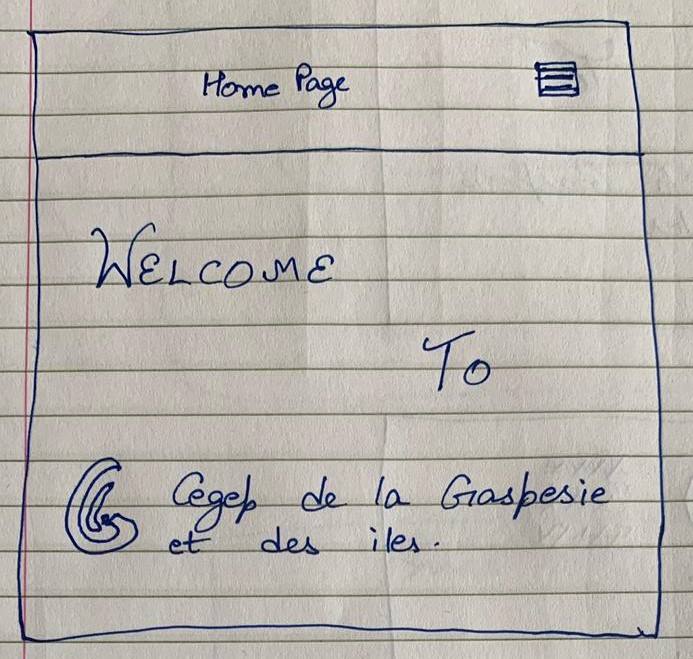 Home Page
WELCOME
To
Cegep de la Gaspesie
et des iles.